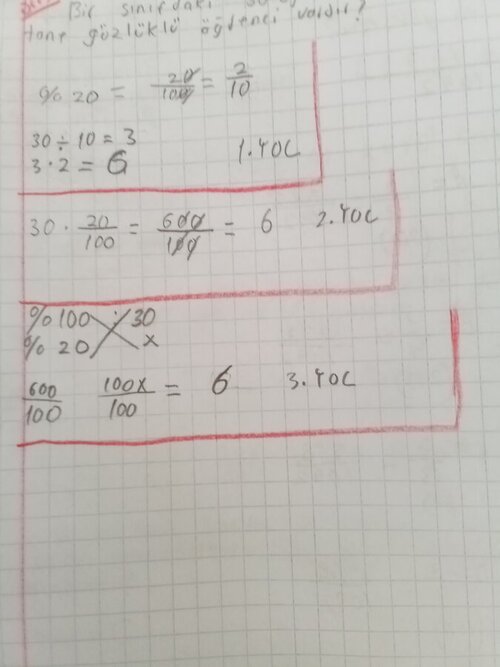 Bir sınıfdaki
tane gözlüklü öğrenci vardır?
% 20 = 20/100 = 2/10
30 ÷ 10 = 3
3 · 2 = 6 1. YOL
30 · 20/100 = 600/100 = 6 2. YOL
% 100 30
% 20 x
600/100 100x/100 = 6 3. YOL